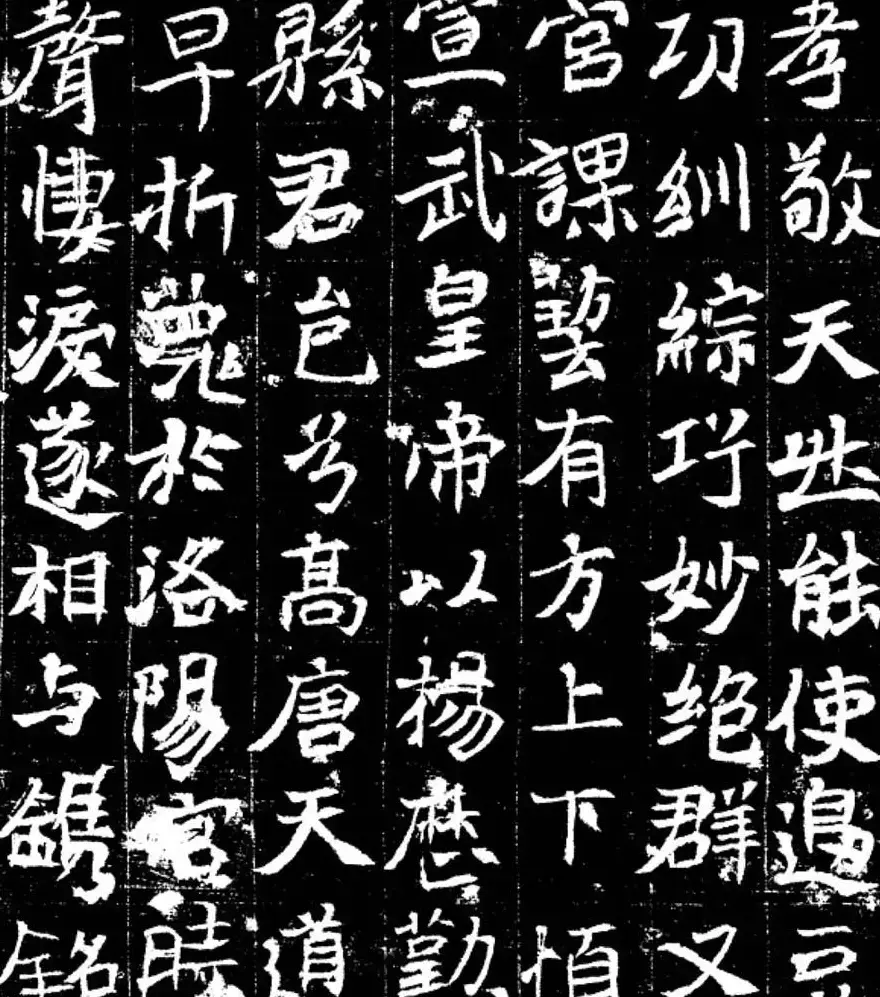 孝敬天然能使邊豆
功紃綜巧妙絶群又
宮課藝有方上下
宣武皇帝以楊歷勤
縣君邑兮高唐天道
早折薨於洛陽宮時
聲悽淚遂相与鐫銘